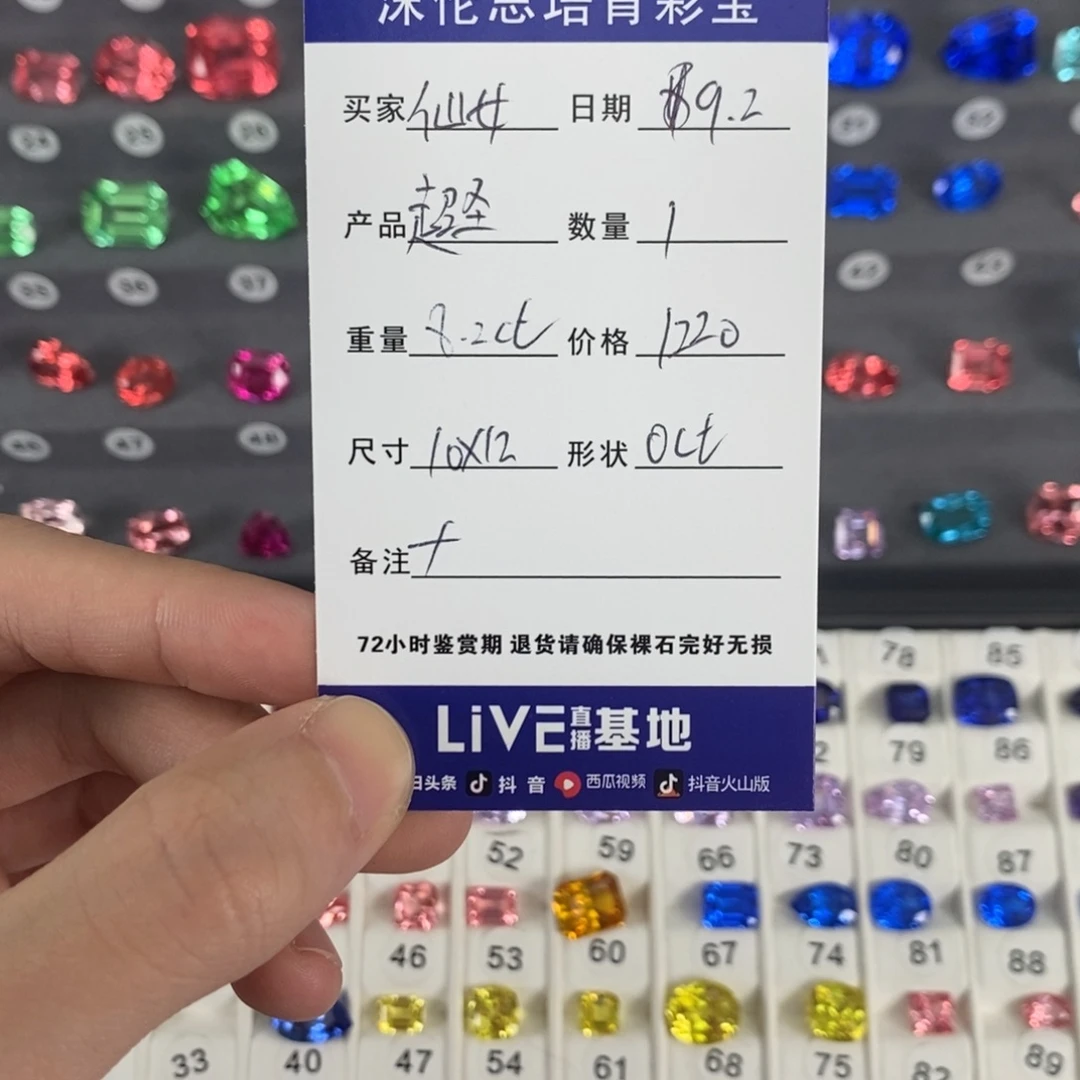 沐伦思培育彩宝
买家 仙女 日期 9.2
产品 数量 1
重量 8.2ct 价格 1220
尺寸 10X12 形状 Oct
备注
72小时鉴赏期 退货请确保裸石完好无损
LiVE直播基地
日头条 抖音 西瓜视频 抖音火山版
78 85
79 86
52 59 66 73 80 87
46 53 60 67 74 81 88
33 40 47 54 61 68 75 82 89